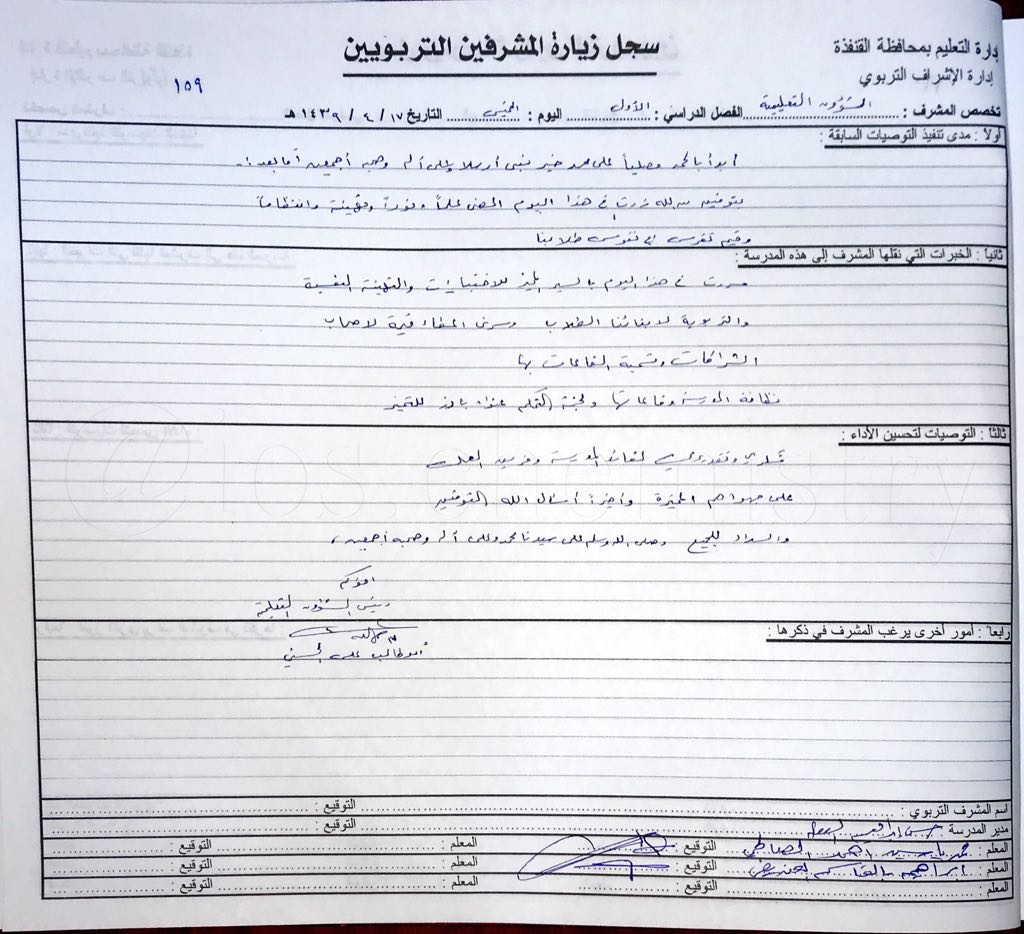 إدارة التعليم بمحافظة القنفذة
إدارة الإشراف التربوي
سجل زيارة المشرفين التربويين
١٥٩
تخصص المشرف : الشؤون التعليمية الفصل الدراسي : الأول اليوم : الخميس التاريخ ١٧ / ٤ / ١٤٣٩ هـ
أولاً : مدى تنفيذ التوصيات السابقة :
أبدأ بالحمد مصلياً على محمد خير نبي أرسلا وعلى آله وصحبه أجمعين أما بعد :
بتوفيق من الله زرت في هذا اليوم علماً وتهيئة وانتظاماً
وقيم تغرس في نفوس طلابنا
ثانياً : الخبرات التي نقلها المشرف إلى هذه المدرسة :
سررت في هذا اليوم بالسير المميز للاختبارات والتهيئة النفسية
والتربوية لأبنائنا الطلاب وسرني لأصحاب
الشراكات وتسمية القاعات بها
نظافة المدرسة وقاعاتها ولجنة التحكم عنوان بارز للتميز
ثالثاً : التوصيات لتحسين الأداء :
شكري وتقديري لقائد المدرسة وفريق العمل
على جهودهم المميزة وأخيراً أسأل الله التوفيق
والسداد للجميع وصلى الله وسلم على سيدنا محمد وعلى آله وصحبه أجمعين ،
أخوكم
رئيس الشؤون التعليمية
أبو طالب علي
رابعاً : أمور أخرى يرغب المشرف في ذكرها :
اسم المشرف التربوي : التوقيع :
مدير المدرسة : التوقيع :
المعلم : أحمد التوقيع : المعلم : التوقيع :
المعلم : ابراهيم التوقيع : المعلم : التوقيع :
المعلم : التوقيع : المعلم : التوقيع :
@ios_chemistry